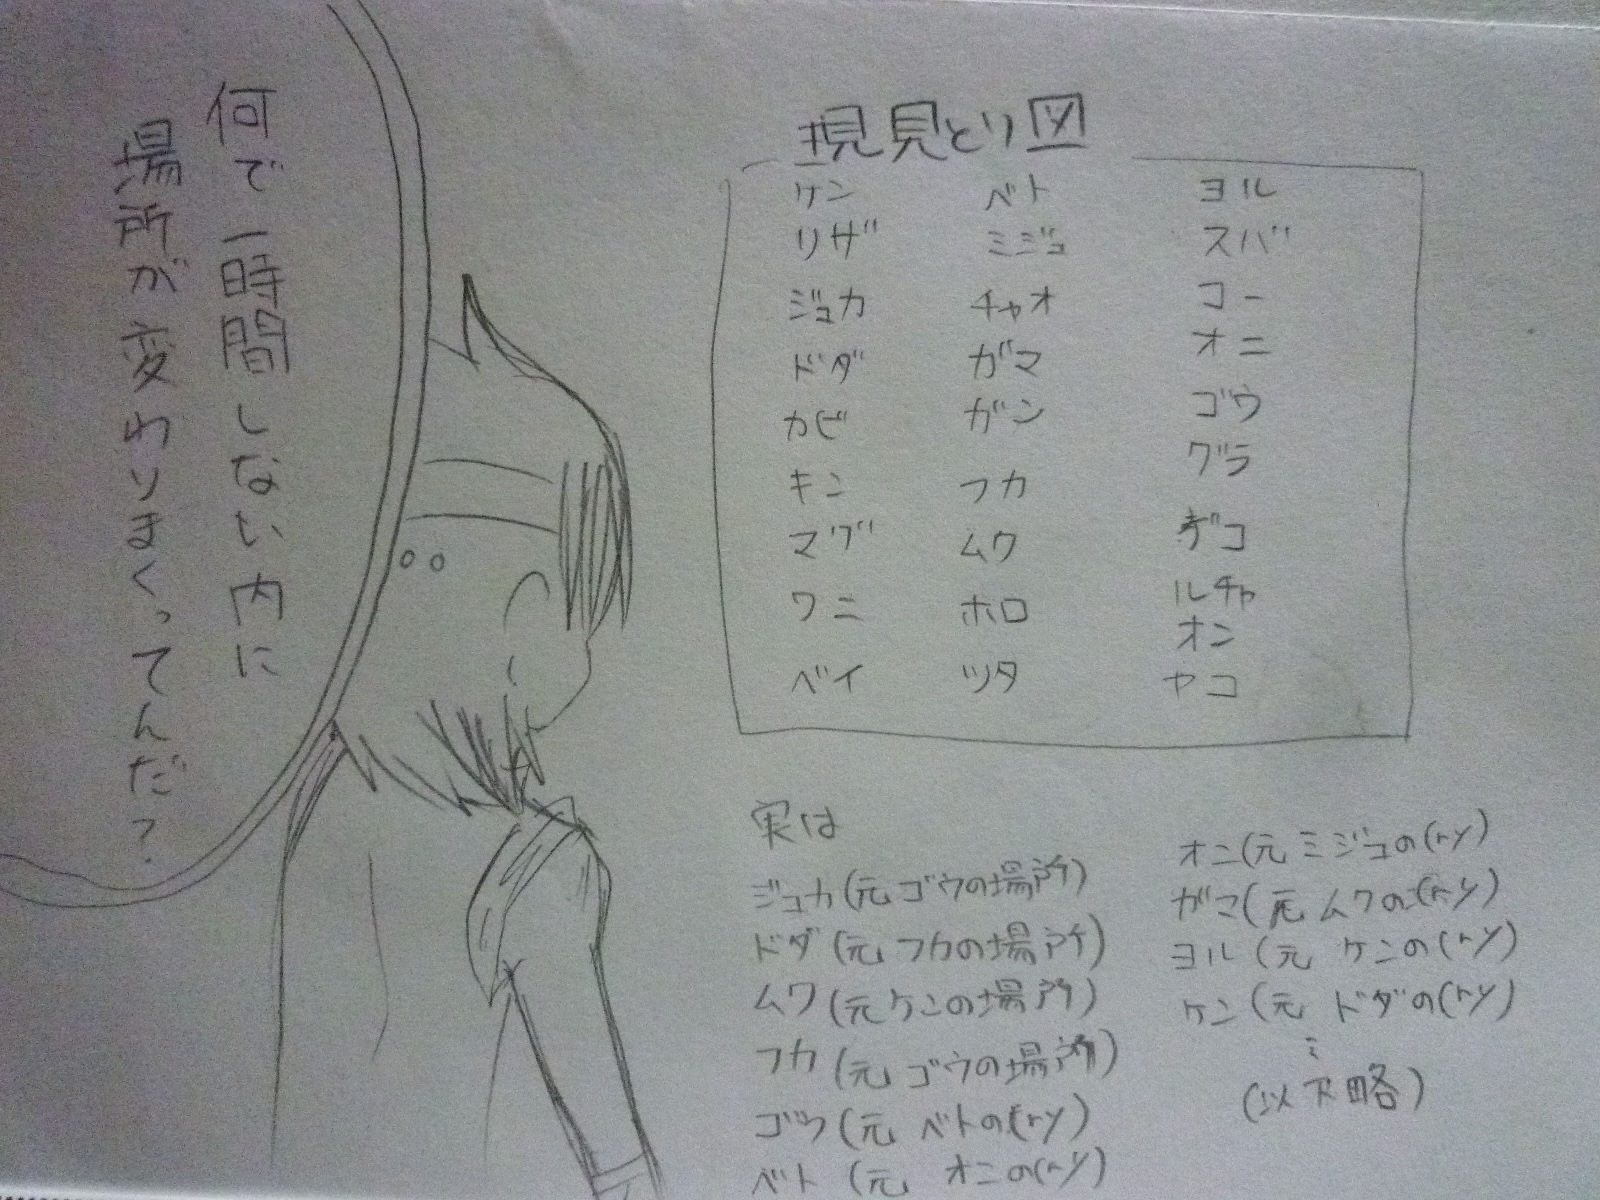 何で一時間しない内に
場所が変わりまくってんだ?
現見とり図
ケン
リザ
ジュカ
ドダ
カビ
キン
マグ
ワニ
ベイ
ベト
ミジュ
チャオ
ガマ
ガン
フカ
ムワ
ホロ
ツタ
ヨル
スバ
コー
オニ
ゴウ
グラ
デコ
ルチャ
オン
ヤコ
実は
ジュカ(元ゴウの場所)
ドダ(元フカの場所)
ムワ(元ケンの場所)
フカ(元ゴウの場所)
ゴウ(元ベトの(ry)
ベト(元オニの(ry)
オニ(元ミジュの(ry)
ガマ(元ムワの(ry)
ヨル(元ケンの(ry)
ケン(元ドダの(ry)
(以下略)